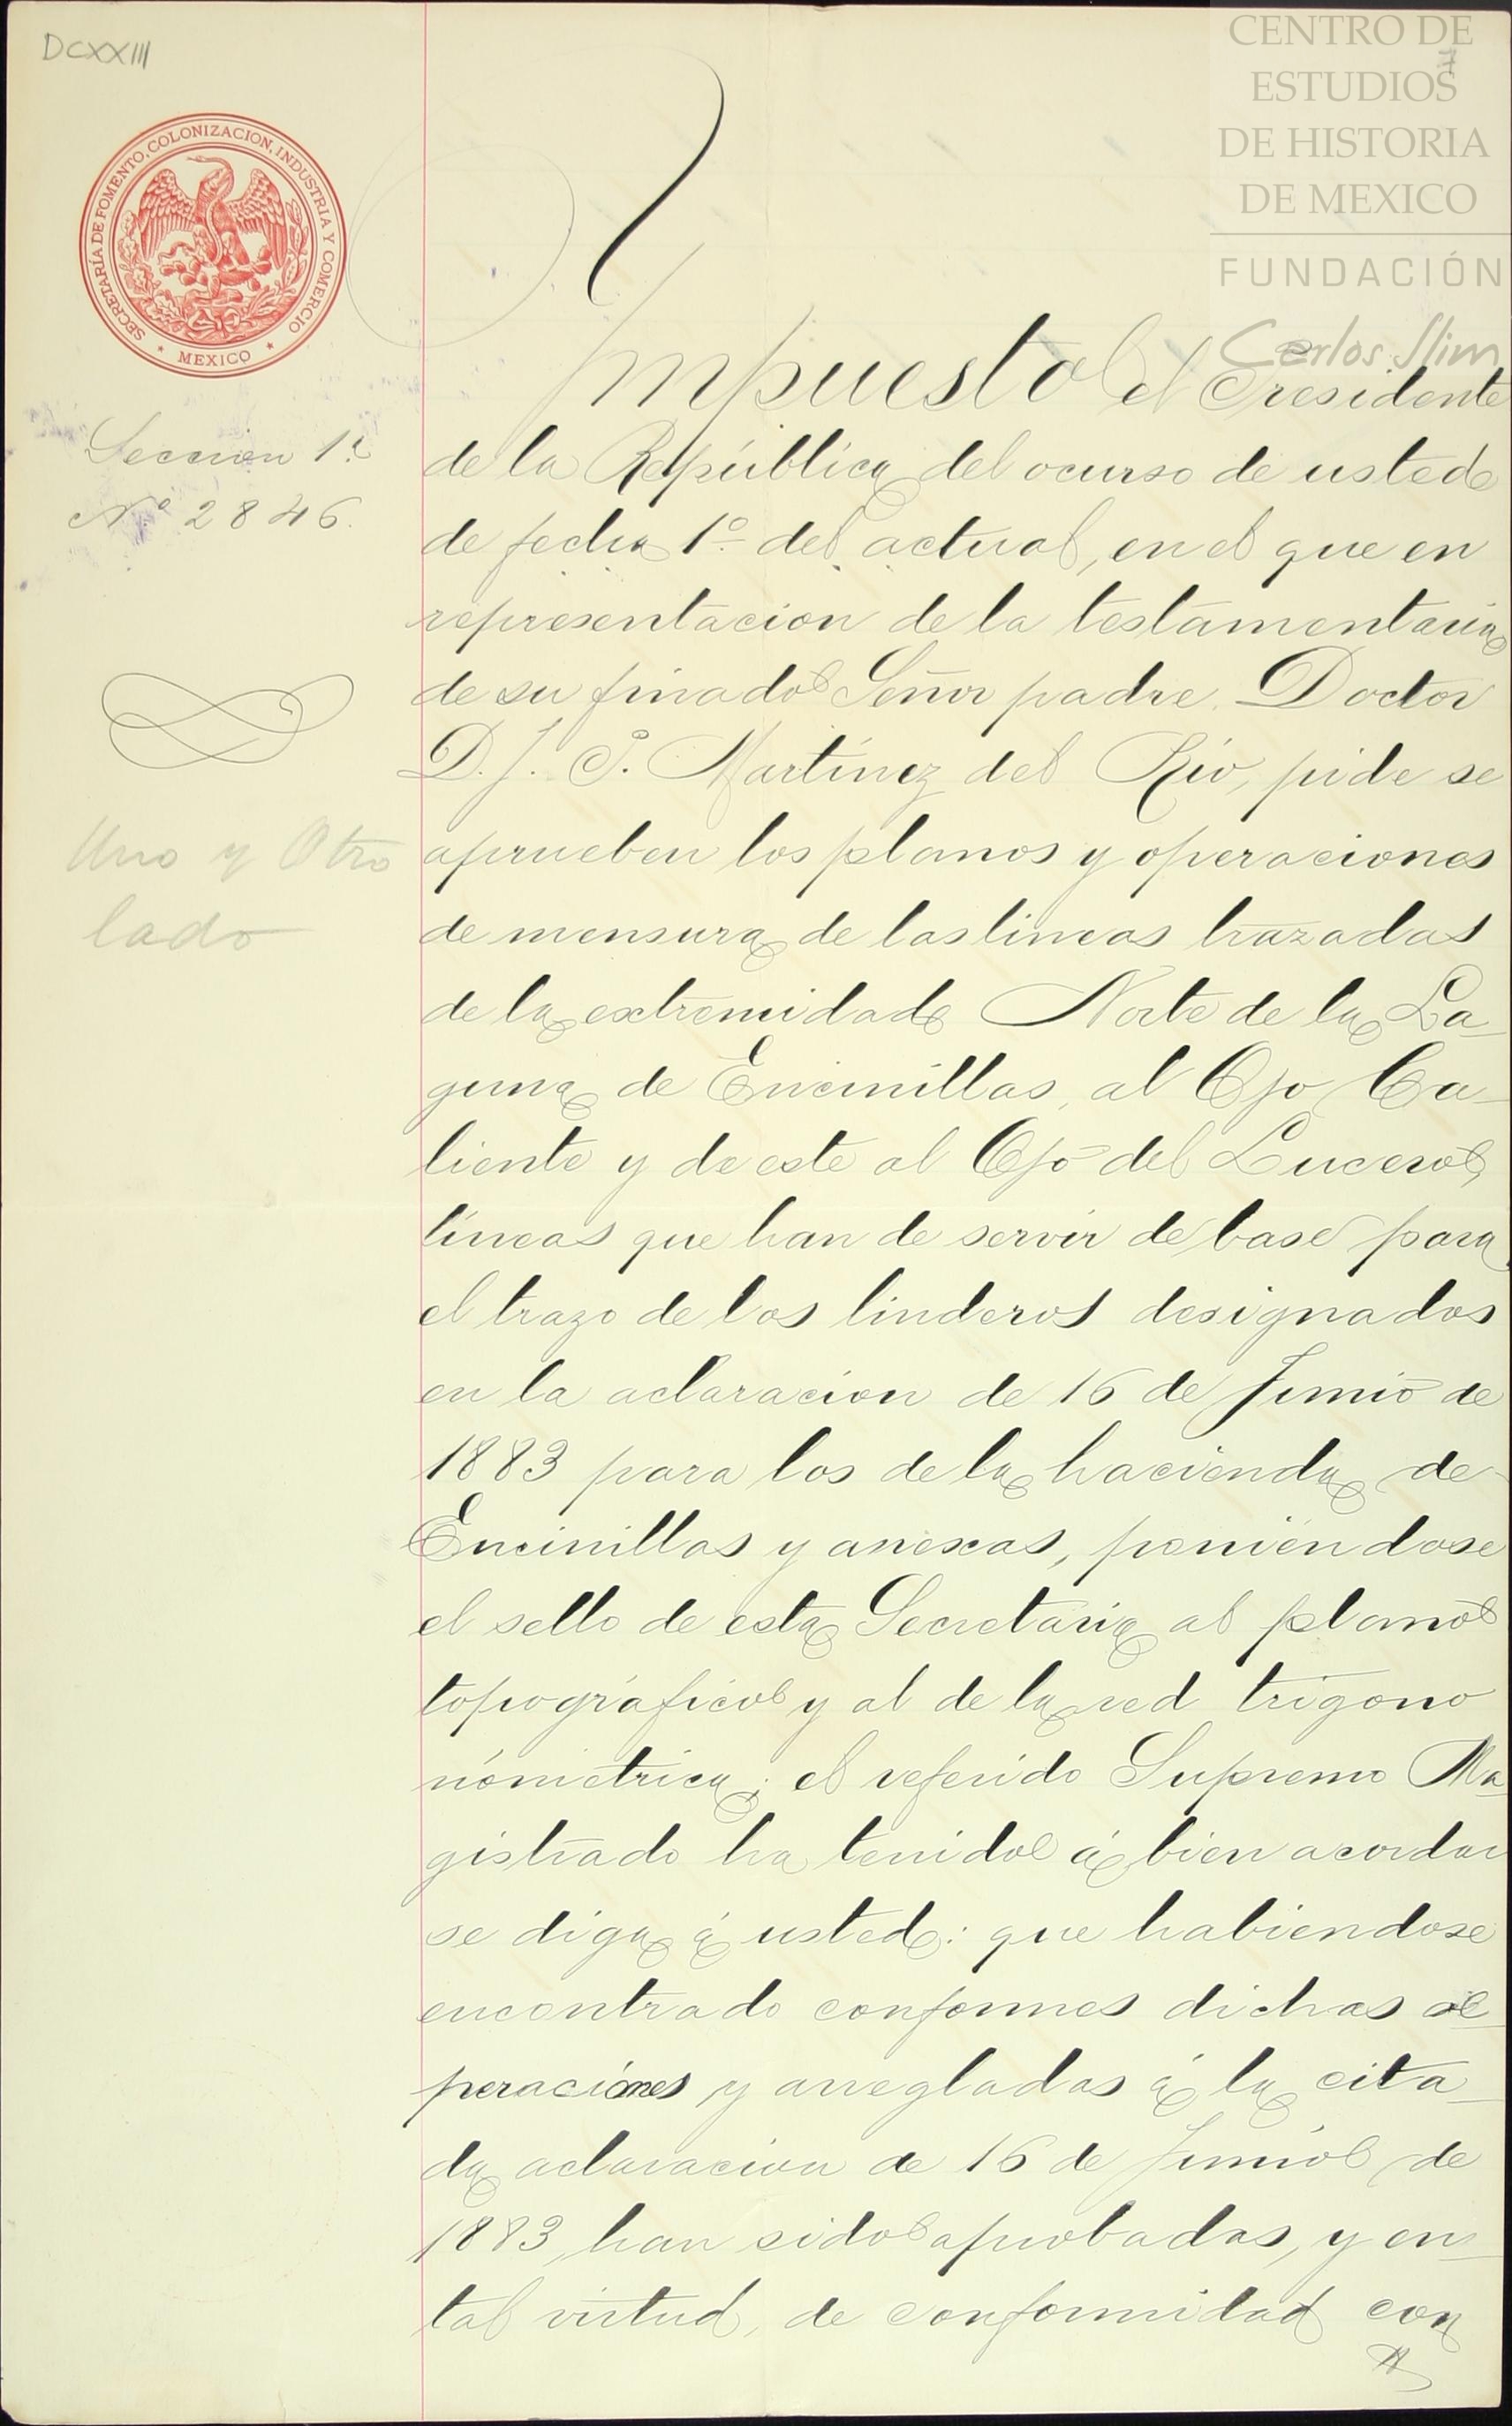 DCXXIII
CENTRO DE
ESTUDIOS
DE HISTORIA
DE MEXICO
FUNDACIÓN
Carlos Slim
7
SECRETARÍA DE FOMENTO, COLONIZACION, INDUSTRIA Y COMERCIO
* MEXICO *
Seccion 1ª
Nº 2846.
Uno y Otro
lado
Impuesto el Presidente
de la República del ocurso de usted
de fecha 1º del actual, en el que en
representacion de la testamentaria
de su finado Señor padre Doctor
D. J. P. Martínez del Rio, pide se
aprueben los planos y operaciones
de mensura de las lineas trazadas
de la extremidad Norte de la La-
guna de Encinillas, al Ojo Ca-
liente y de este al Ojo del Lucero,
líneas que han de servir de base para
el trazo de los linderos designados
en la aclaracion de 16 de Junio de
1883 para los de la hacienda de
Encinillas y anexas, poniéndose
el sello de esta Secretaría al plano
topográfico y al de la red trigono
nómetrica; el referido Supremo Ma-
gistrado ha tenido á bien acordar
se diga á usted: que habiendose
encontrado conformes dichas o-
peraciones y arregladas á la cita-
da aclaracion de 16 de Junio de
1883, han sido aprobadas, y en
tal virtud, de conformidad con